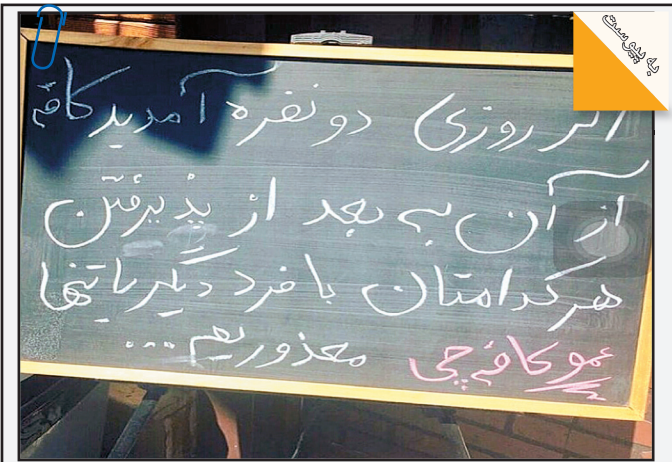 به پیوست
اگر روزی دو نفره آمدید کافه
از آن به بعد از پذیرفتن
هر کدامتان با فرد دیگر یا تنها
معذوریم ... عمو کافه‌چی